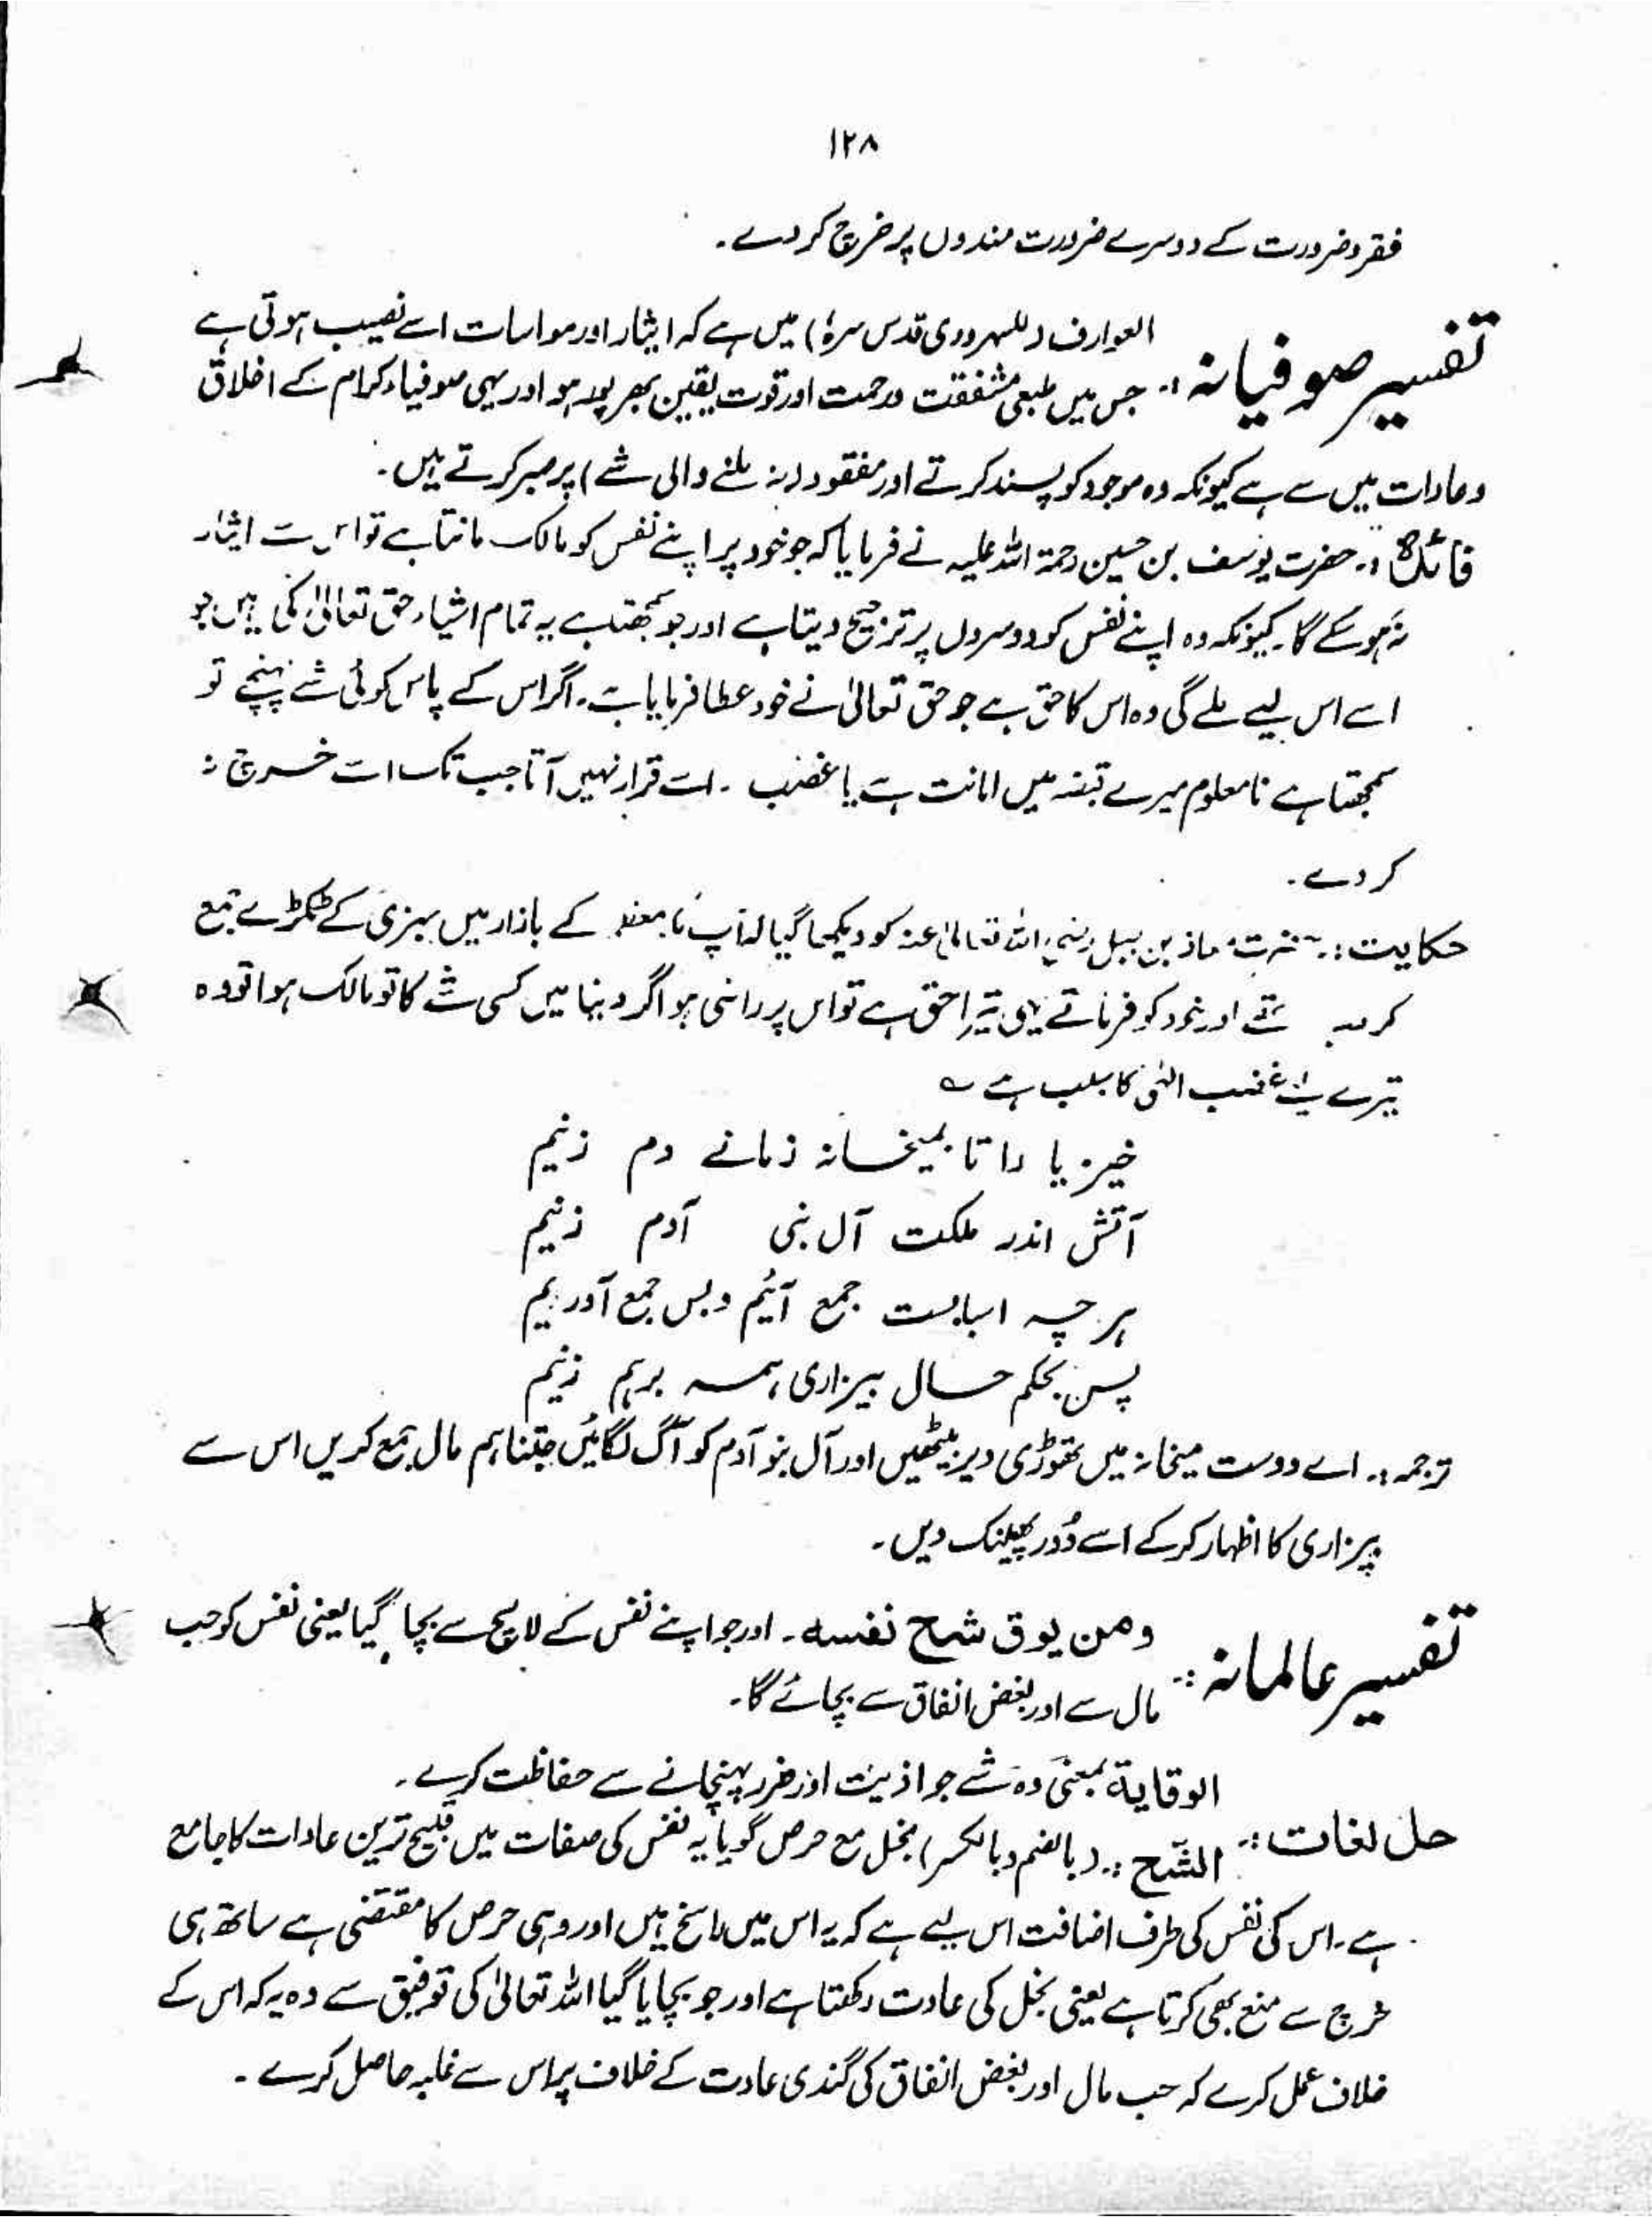 ۱۲۸
فقر و ضرورت کے دوسرے ضرورت مندوں پر خرچ کر دے۔
تفسیر صوفیانہ :۔ العوارف (للسہروردی قدس سرہٗ) میں ہے کہ ایثار اور مواسات اسے نصیب ہوتی ہے
جس میں طبعی شفقت و رحمت اور قوت یقین بھرپور ہو اور یہی صوفیاء کرام کے اخلاق
و عادات میں سے ہے کیونکہ وہ موجود کو پسند کرتے اور مفقود (نہ ملنے والی شے) پر صبر کرتے ہیں۔
فائدہ :۔ حضرت یوسف بن حسین رحمۃ اللہ علیہ نے فرمایا کہ جو خود پر اپنے نفس کو مالک مانتا ہے تو اس سے ایثار
نہ ہو سکے گا۔ کیونکہ وہ اپنے نفس کو دوسروں پر ترجیح دیتا ہے اور جو سمجھتا ہے یہ تمام اشیاء حق تعالیٰ کی ہیں جو
اسے اس لیے ملے گی وہ اس کا حق ہے جو حق تعالیٰ نے خود عطا فرمایا ہے۔ اگر اس کے پاس کوئی شے پہنچے تو
سمجھتا ہے نامعلوم میرے قبضہ میں امانت ہے یا غضب ۔ اسے قرار نہیں آتا جب تک اسے خرچ نہ
کر دے۔
حکایت :۔ حضرت اللہ تعالیٰ عنہ کو دیکھا گیا کہ آپ کے بازار میں سبزی کے ٹکڑے جمع
کر رہے تھے اور خود کو فرماتے یہی تیرا حق ہے تو اس پر راضی ہو اگر دنیا میں کسی شے کا تو مالک ہوا تو وہ
تیرے لیے غضب الٰہی کا سبب ہے ؎
خیز یا را تا بمیخانہ زمانے دم زنیم
آتش اندر ملکت آل بنی آدم زنیم
ہر چہ اسبابست جمع آئیم و بس جمع آوریم
پس بحکم حال بیزاری ہمہ برہم زنیم
ترجمہ :۔ اے دوست میخانہ میں تھوڑی دیر بیٹھیں اور آل بنو آدم کو آگ لگائیں جتنا ہم مال جمع کریں اس سے
بیزاری کا اظہار کر کے اسے دُور پھینک دیں۔
تفسیر عالمانہ :۔ ومن یوق شح نفسہ۔ اور جو اپنے نفس کے لالچ سے بچا گیا یعنی نفس کو حب
مال سے اور بغض انفاق سے بچائے گا۔
الوقایۃ بمعنی وہ شے جو اذیت اور ضرر پہنچانے سے حفاظت کرے۔
حل لغات :۔ الشح :۔ (بالضم و بالکسر) بخل مع حرص گویا یہ نفس کی صفات میں قبیح ترین عادات کا جامع
ہے۔ اس کی نفس کی طرف اضافت اس لیے ہے کہ یہ اس میں راسخ ہیں اور وہی حرص کا مقتضی ہے ساتھ ہی
خرچ سے منع بھی کرتا ہے یعنی بخل کی عادت رکھتا ہے اور جو بچایا گیا اللہ تعالیٰ کی توفیق سے وہ یہ کہ اس کے
خلاف عمل کرے کہ حب مال اور بغض انفاق کی گندی عادت کے خلاف پر اس سے غلبہ حاصل کرے۔